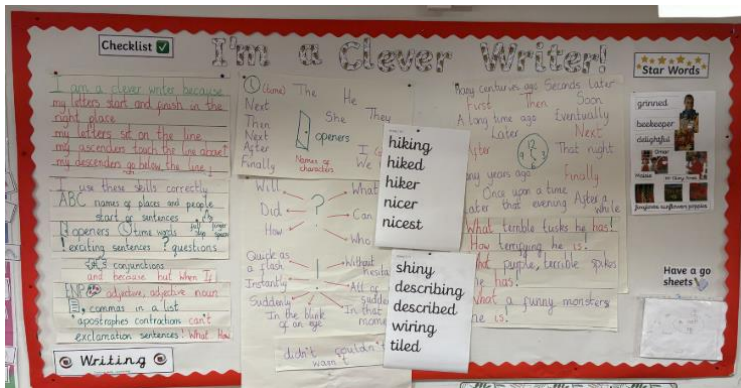 Checklist
I'm a Clever Writer!
Star Words
I am a clever writer because
my letters start and finish in the
right place
my letters sit on the line
my ascenders touch the line above
my descenders go below the line
I use these skills correctly
ABC names of places and people
start of sentences
openers time words full stop finger space
! exciting sentences ? questions
conjunctions
and because but when If
ENP adjective, adjective noun
, commas in a list
apostrophes contraction can't
exclamation sentences! What How
Writing
(time) The
Next He
Then She They
Next openers
After
Finally Names of characters We
Will What
Did ? Can
How Who
Quick as a flash Without
Instantly ! All of
Suddenly In that
In the blink of an eye
didn't couldn't
wasn't
hiking
hiked
hiker
nicer
nicest
shiny
describing
described
wiring
tiled
Many centuries ago Seconds later
First Then Soon
A long time ago Eventually
Later Next
After That night
many years ago Finally
Once upon a time
Later that evening After a while
What terrible tusks he has!
How terrifying he is.
What purple, terrible spikes
he has!
What a funny monster
he is!
grinned
beekeeper
delightful
Have a go
sheets